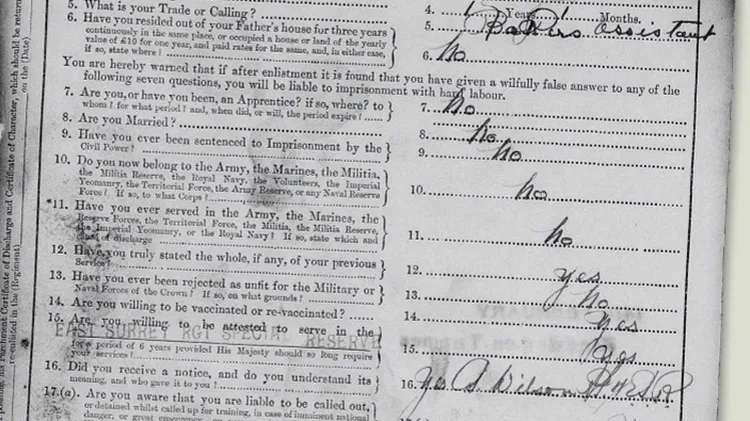 4. Years Months.
5. What is your Trade or Calling? 5. Bakers Assistant
6. Have you resided out of your Father's house for three years
continuously in the same place, or occupied a house or land of the yearly
value of £10 for one year, and paid rates for the same, and, in either case,
if so, state where? 6. No
You are hereby warned that if after enlistment it is found that you have given a wilfully false answer to any of the
following seven questions, you will be liable to imprisonment with hard labour.
7. Are you, or have you been, an Apprentice? if so, where? to
whom? for what period? and, when did, or will, the period expire? 7. No
8. Are you Married? 8. No
9. Have you ever been sentenced to Imprisonment by the
Civil Power? 9. No
10. Do you now belong to the Army, the Marines, the Militia,
the Militia Reserve, the Royal Navy, the Volunteers, the Imperial
Yeomanry, the Territorial Force, the Army Reserve, or any Naval Reserve
Force? If so, to what Corps? 10. No
*11. Have you ever served in the Army, the Marines, the
Reserve Forces, the Territorial Force, the Militia, the Militia Reserve,
the Imperial Yeomanry, or the Royal Navy? If so, state which and
cause of discharge 11. No
12. Have you truly stated the whole, if any, of your previous
Service? 12. Yes
13. Have you ever been rejected as unfit for the Military or
Naval Forces of the Crown? If so, on what grounds? 13. No
14. Are you willing to be vaccinated or re-vaccinated? 14. Yes
15. Are you willing to be attested to serve in the
EAST SURREY RGT SPECIAL RESERVE
for a period of 6 years provided His Majesty should so long require
your services? 15. Yes
16. Did you receive a notice, and do you understand its
meaning, and who gave it to you? 16. Yes Wilson
17(a). Are you aware that you are liable to be called out,
or detained whilst called up for training, in case of imminent national
danger, or great emergency,
Certificate of Discharge and Certificate of Character, which should be return
on the (Date)
re-enlisted in the (Regiment)